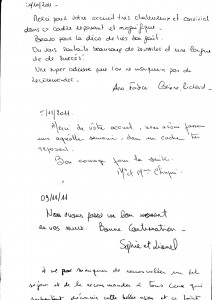 Merci pour votre accueil très chaleureux et convivial
dans ce cadre reposant et magnifique.
Bravo pour la déco de très bon goût.
On vous souhaite beaucoup de bonnes et une longue
vie de succès.
Une super adresse que l'on ne manquera pas de
recommander.
5/11/2011
Merci de votre accueil, nous avons passé
une agréable semaine, dans un cadre très
reposant.
Bon courage pour la suite.
Mr et Mme
03/11/11
Nous avons passé un bon moment
en vos murs. Bonne Continuation.
Sophie et Lionel
A ne pas manquer de renouveler un tel
séjour et de le recommander à tous ceux qui